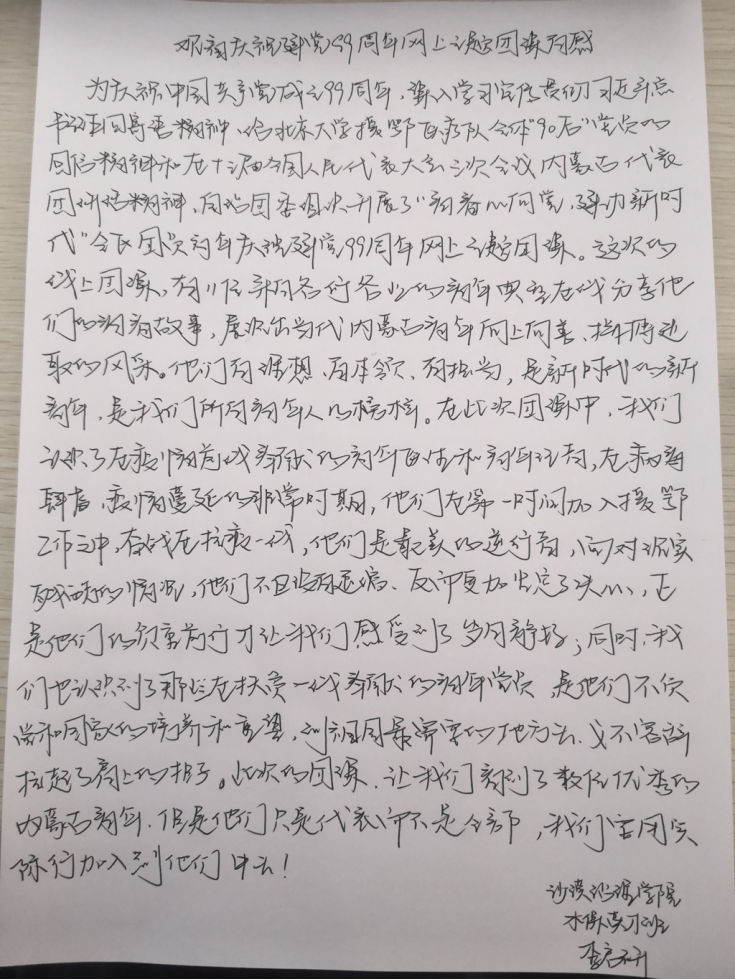 观看庆祝建党99周年网上主题团课有感
为庆祝中国共产党成立99周年,深入学习宣传贯彻习近平总
书记重要寄语精神、给北京大学援鄂医疗队全体"90后"党员的
回信精神和在十三届全国人民代表大会三次会议内蒙古代表
团讲话精神,自治区团委组织开展了"青春心向党,建功新时
代"全区团员青年庆祝建党99周年网上主题团课。这次的
线上团课,有11位来自各行各业的青年典型在线分享他
们的青春故事,展现出当代内蒙古青年向上向善、拼搏进
取的风采。他们有理想、有本领、有担当,是新时代的新
青年,是我们所有青年人的榜样。在此次团课中,我们
认识了在疫情前线奉献的青年医生和青年记者,在病毒
肆虐、疫情蔓延的非常时期,他们在第一时间加入援鄂
工作之中,奋战在抗疫一线,他们是最美的逆行者,面对现实
残酷的情况,他们不但没有退缩、反而更加坚定了决心,正
是他们的负重前行才让我们感受到了岁月静好;同时,我
们也认识到了那些在扶贫一线奉献的青年党员,是他们不负
党和国家的培养和重望,到祖国最需要的地方去、义不容辞
扛起了肩上的担子。此次的团课,让我们看到了数位优秀的
内蒙古青年,但是他们只是代表而不是全部,我们要用实
际行加入到他们中去!
沙漠治理学院
水保英才班